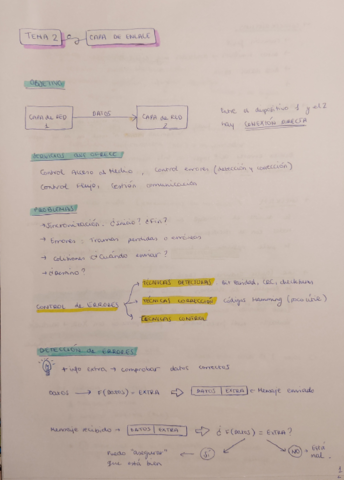 TEMA 2 CAPA DE ENLACE
OBJETIVO
CAPA DE RED 1 DATOS CAPA DE RED 2
hay CONEXIÓN DIRECTA
SERVICIOS QUE OFRECE:
Control Acceso al Medio, Control errores (detección y corrección)
Control Flujo, Gestión comunicación
PROBLEMAS:
Sincronización: ¿Inicio? ¿Fin?
→ Errores: tramas perdidas o erróneas
→ Colisiones
→ ¿Dúplex?
CONTROL de ERRORES
TÉCNICAS DETECTORAS bit paridad, CRC,
TÉCNICAS CORRECCIÓN código Hamming
TÉCNICAS CONTROL
DETECCIÓN de ERRORES
+ info extra → comprobar datos correctos
DATOS → F(DATOS) = EXTRA DATOS EXTRA = Mensaje enviado
Mensaje recibido → DATOS EXTRA ¿F(DATOS) = EXTRA?
Puedo "asegurar" SÍ NO → está
que está bien mal
1